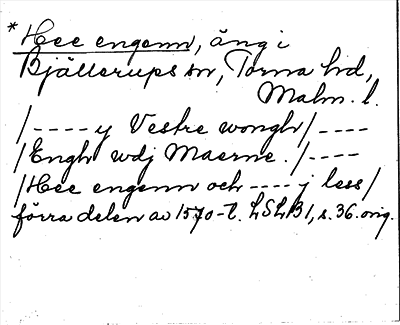 * Hee engenn, äng i
Bjällerups sn, Torna hd,
Malm. l.
/---- y Vestre wongh/----
/Engh wdj Maerne./----
/Hee engenn och ---- j less/
förra delen av 1570-t. LSLB1, s. 36. orig.